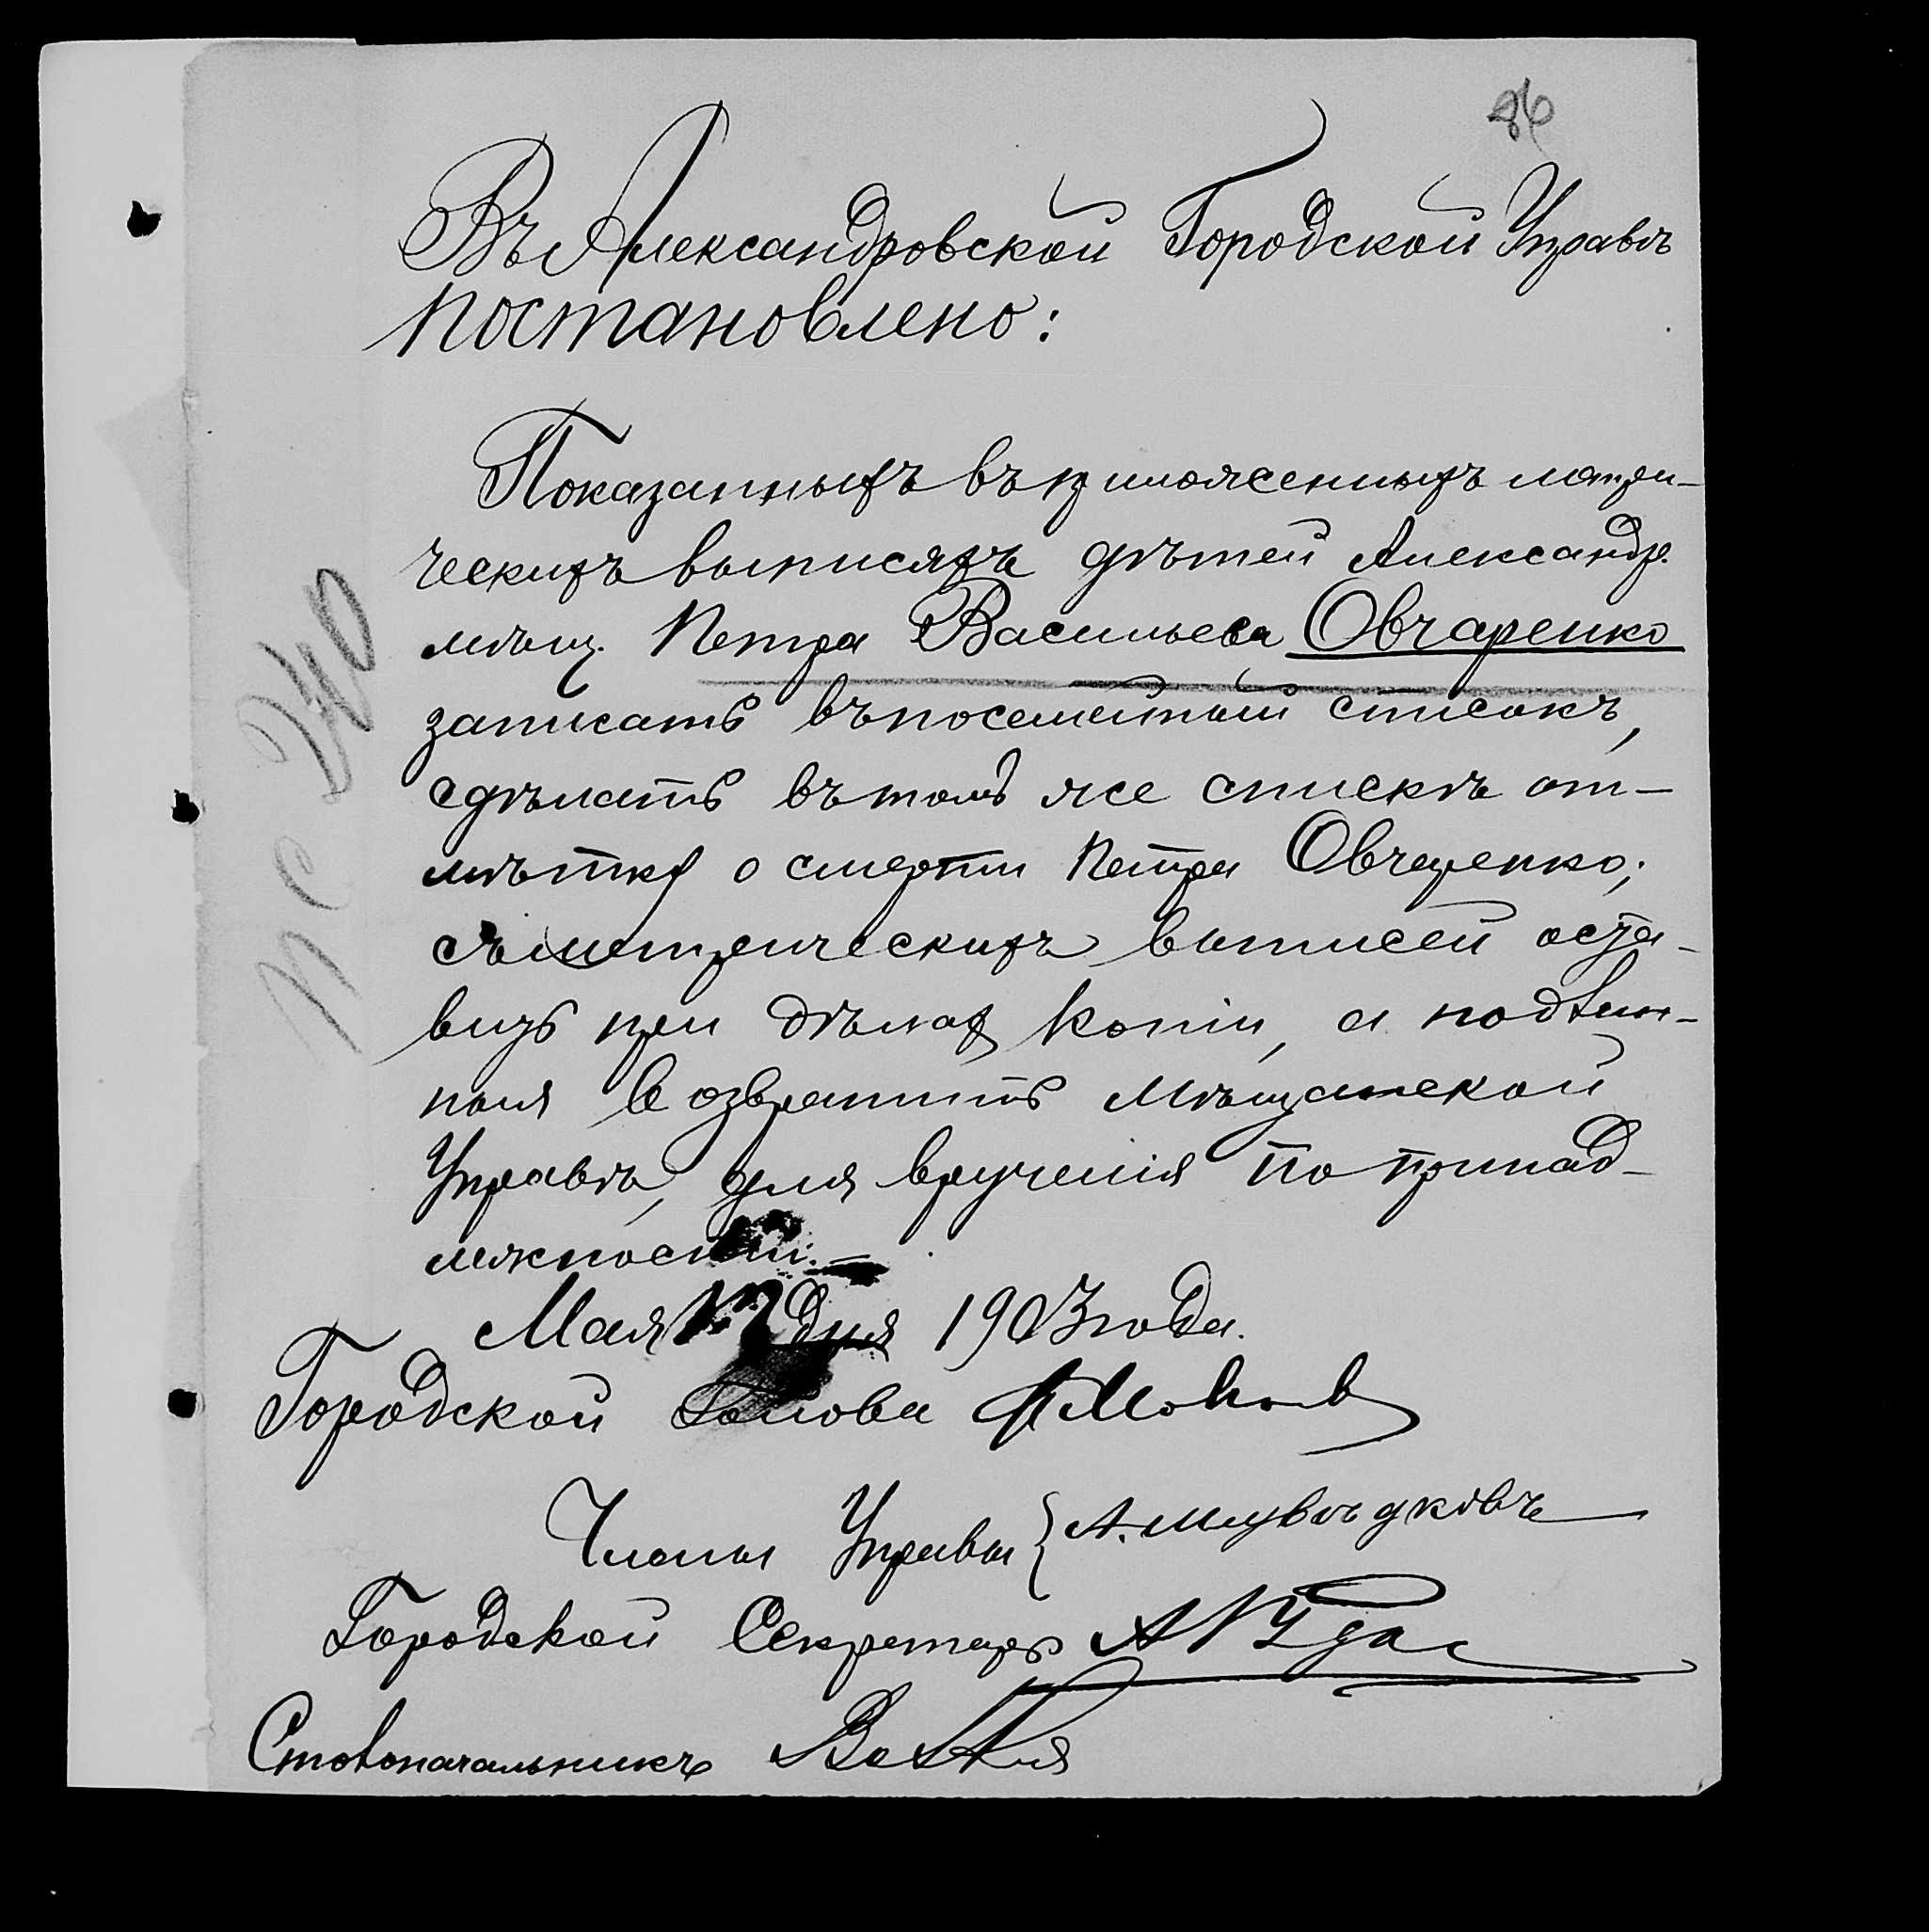 86
Въ Александровской Городской Управѣ
постановлено:
Показанныхъ въ приложенныхъ метри-
ческихъ выписяхъ дѣтей Александр.
мѣщ. Петра Васильева Овчаренко
записать въ посемейный списокъ,
сдѣлать въ томъ же спискѣ от-
мѣтку о смерти Петра Овчаренко;
съ метрическихъ выписей оста-
вить при дѣлахъ копіи, а подлин-
ныя возвратить Мѣщанской
Управѣ, для врученія по принад-
лежности.—
Мая дня 1903 года.
Городской Голова
Члены Управы { А.
Городской Секретарь
Столоначальникъ